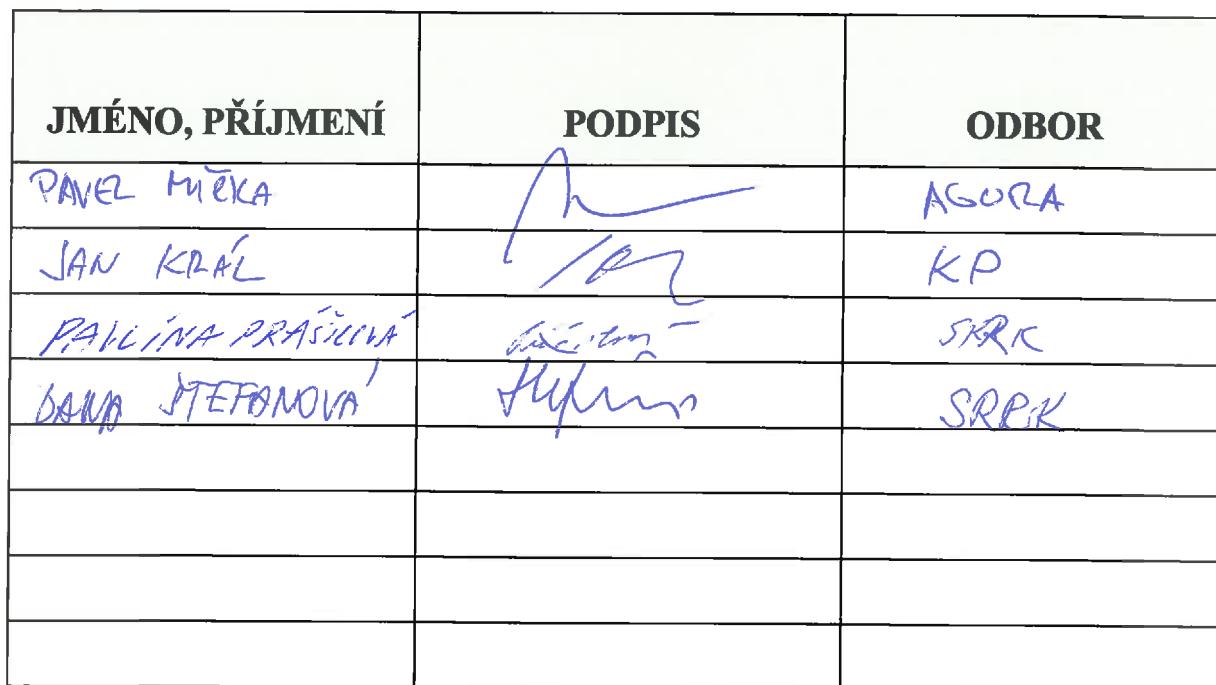 JMÉNO, PŘÍJMENÍ PODPIS ODBOR
PAVEL MIČKA AGORA
JAN KRÁL KP
PAVLÍNA SRRK
DANA ŠTEFANOVÁ SRRK